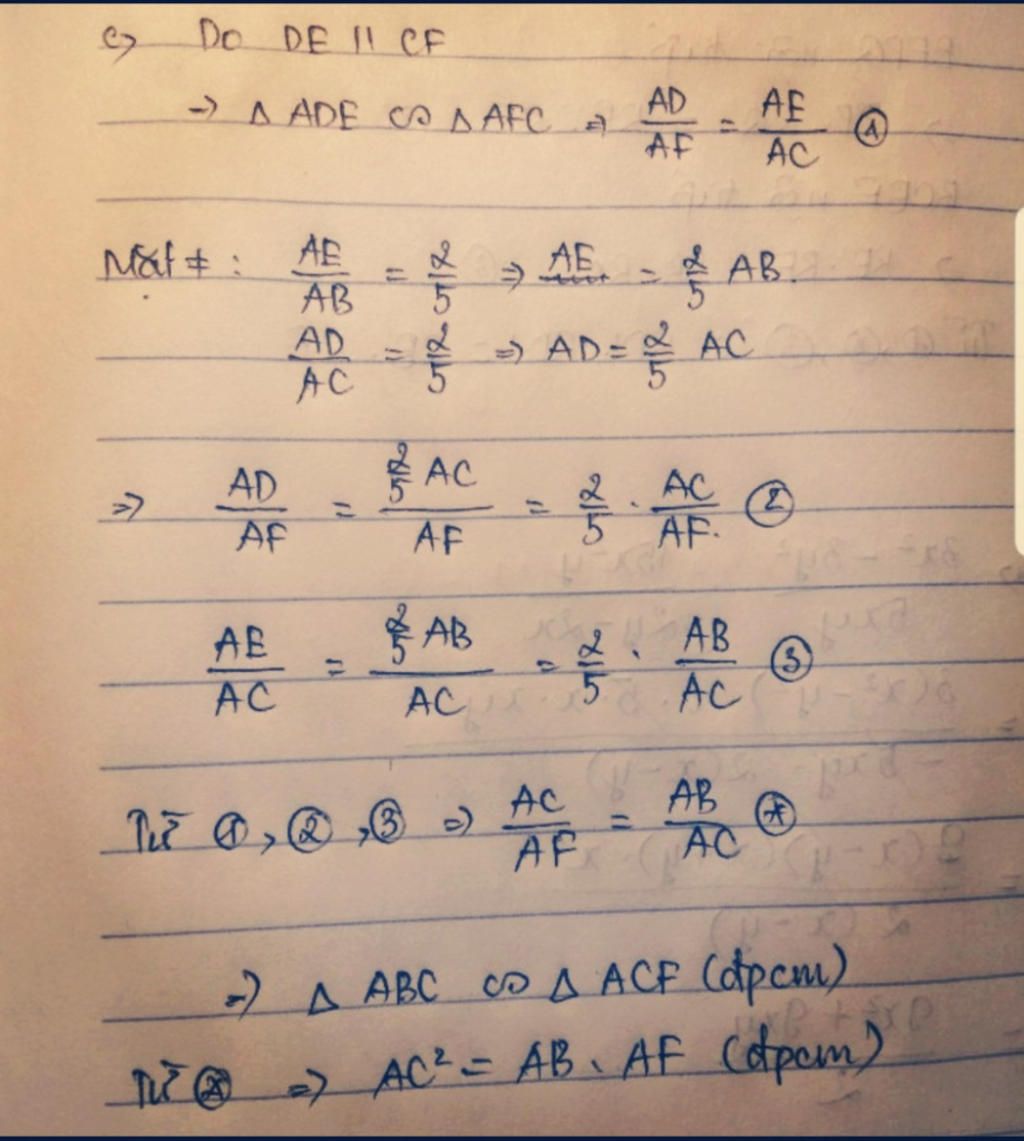 c) Do DE // CF
→ Δ ADE ∽ Δ AFC ⇒ AD/AF = AE/AC ①
Mặt ≠ : AE/AB = 2/5 ⇒ AE = 2/5 AB.
AD/AC = 2/5 ⇒ AD = 2/5 AC
⇒ AD/AF = (2/5 AC)/AF = 2/5 . AC/AF. ②
AE/AC = (2/5 AB)/AC = 2/5 . AB/AC ③
Từ ①, ②, ③ ⇒ AC/AF = AB/AC (*)
⇒ Δ ABC ∽ Δ ACF (đpcm)
Từ (*) ⇒ AC² = AB . AF (đpcm)